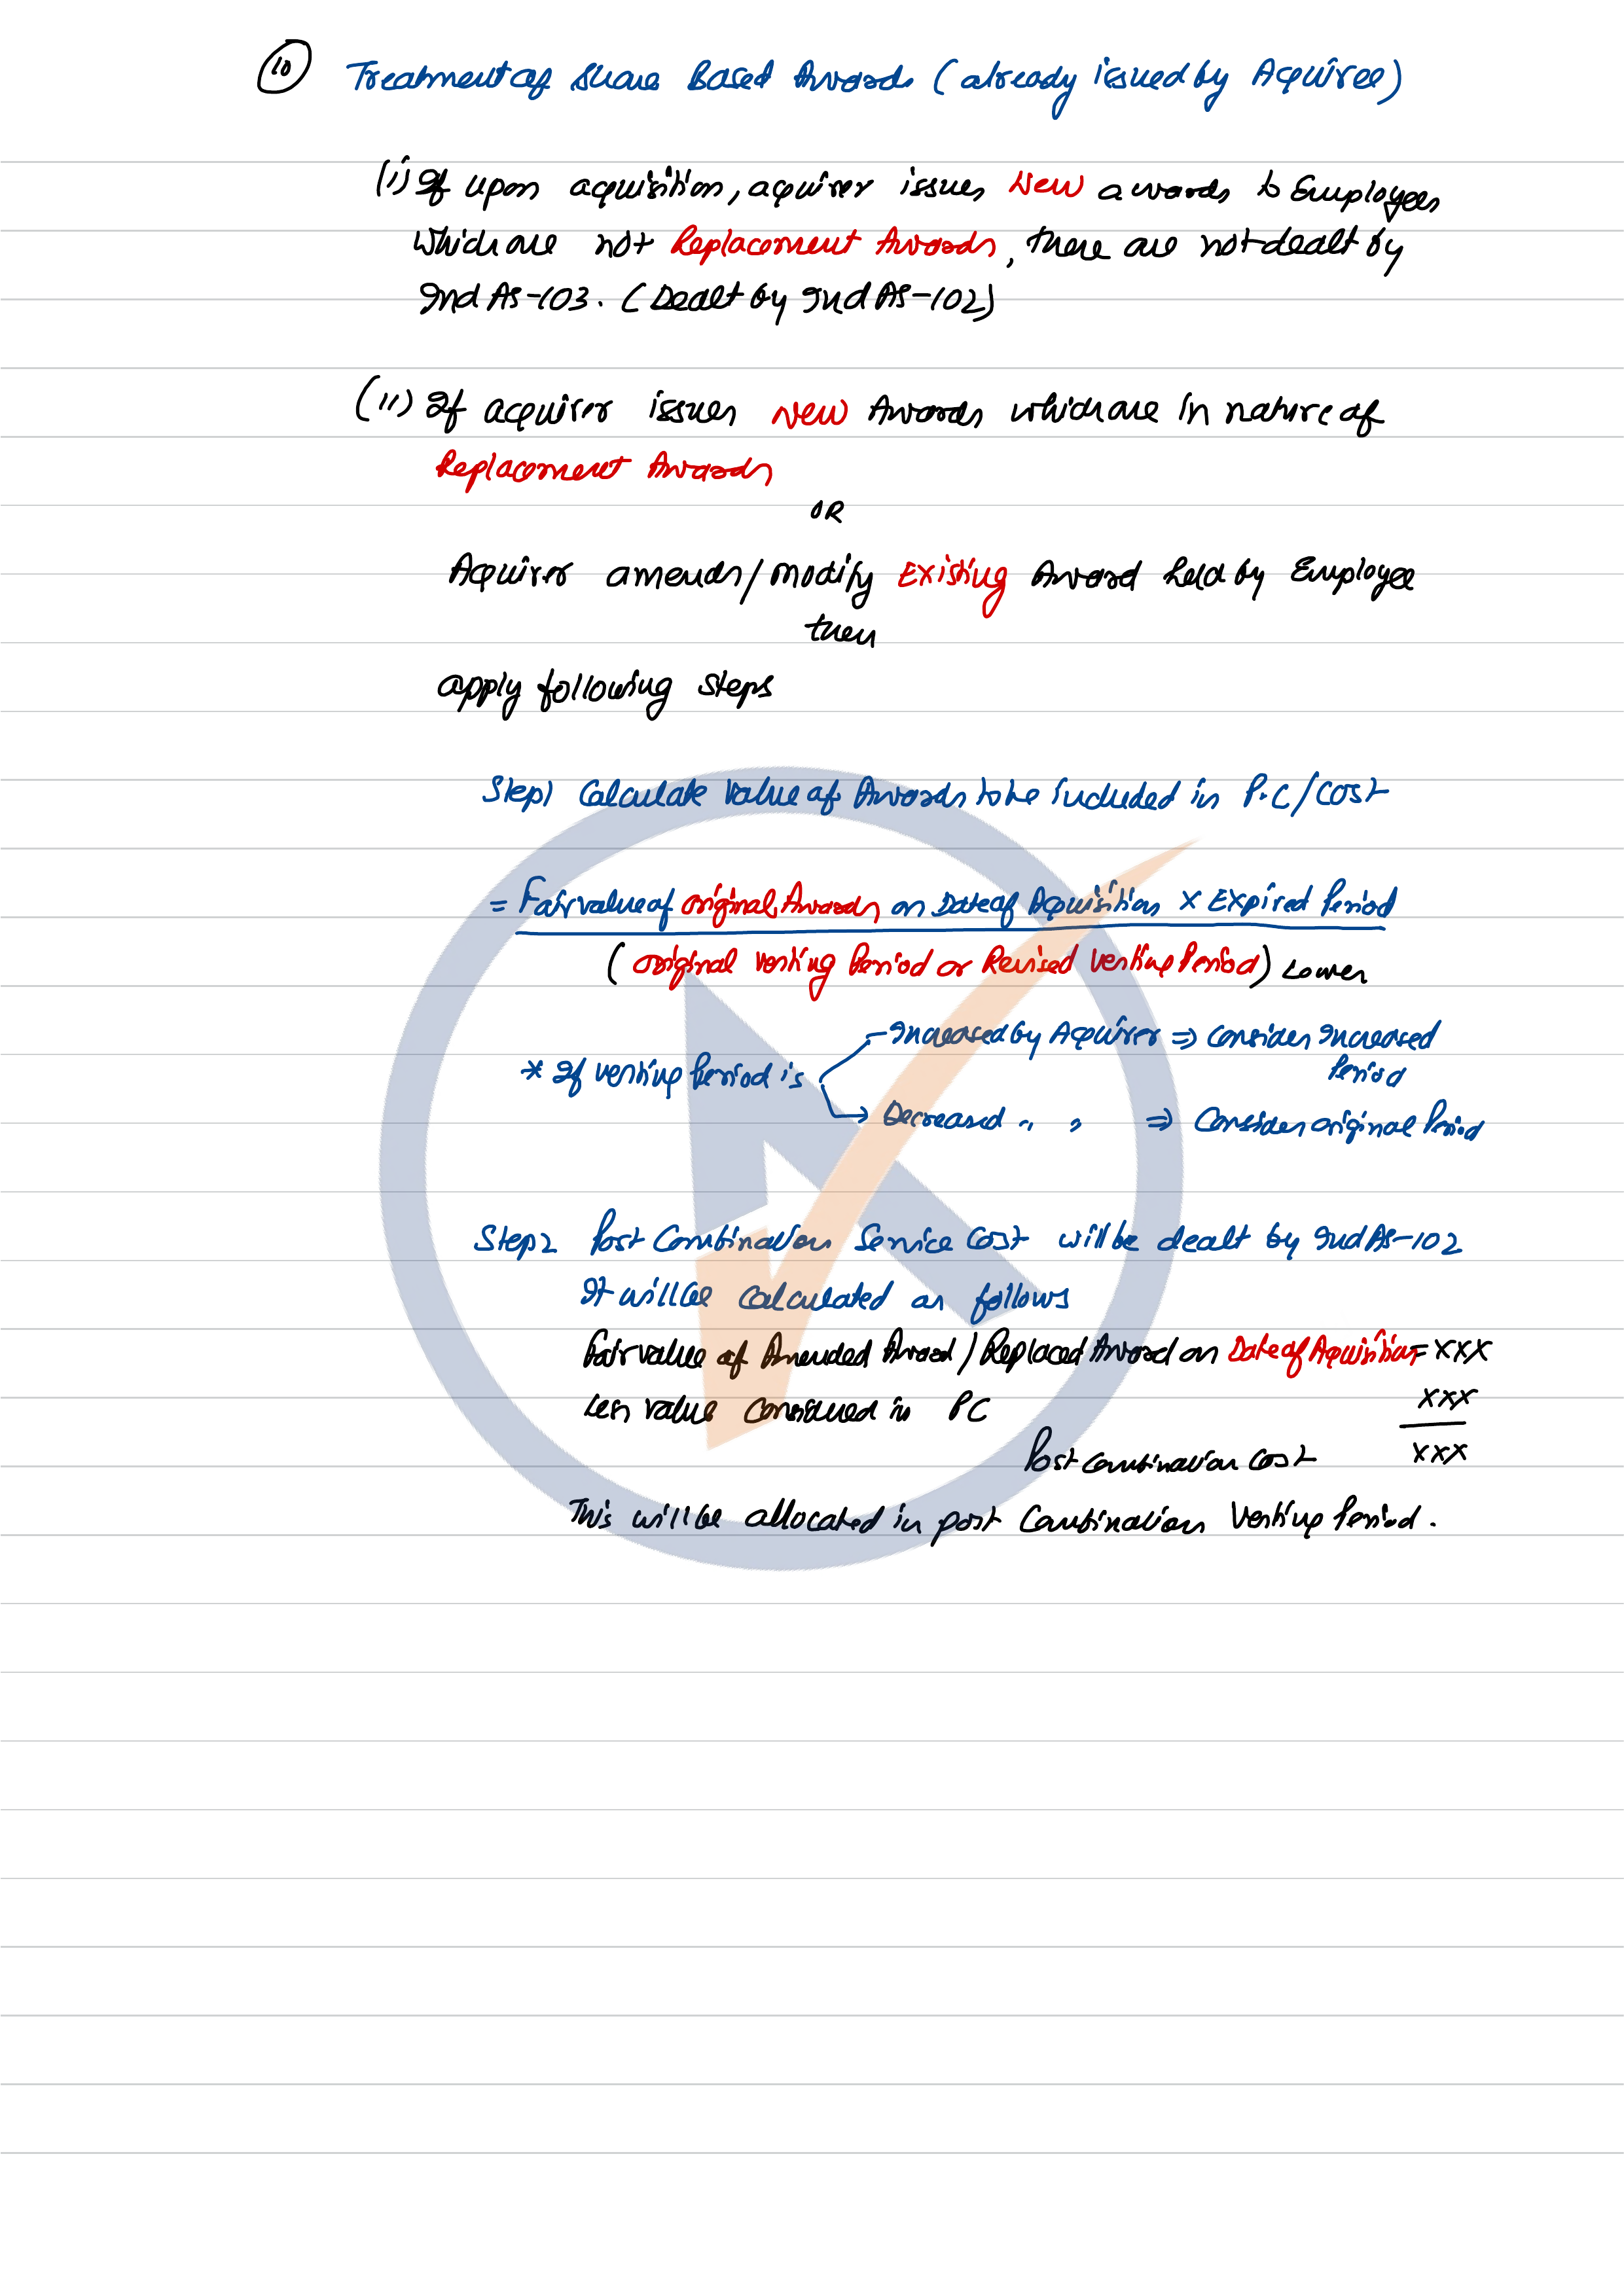 10 Treatment of Share Based Awards (already issued by Acquiree)
(i) If upon acquisition, acquirer issues New awards to Employees
which are not Replacement Awards, there are not dealt by
Ind AS-103. (Dealt by Ind AS-102)
(ii) If acquirer issues New Awards which are in nature of
Replacement Awards
OR
Acquirer amends/modify Existing Award held by Employee
then
apply following steps
Step1 Calculate Value of Awards to be included in P.C/Cost
= Fair value of original Awards on Date of Acquisition X Expired Period
(original Vesting Period or Revised Vesting Period) Lower
Increased by Acquirer ⇒ Consider Increased
* If vesting Period is Period
Decreased " " ⇒ Consider original Period
Step2 Post Combination Service Cost will be dealt by Ind AS-102
It will be calculated as follows
Fair value of Amended Award/Replaced Award on Date of Acquisition = XXX
Less value Considered in PC XXX
Post Combination Cost XXX
This will be allocated in post Combination Vesting Period.